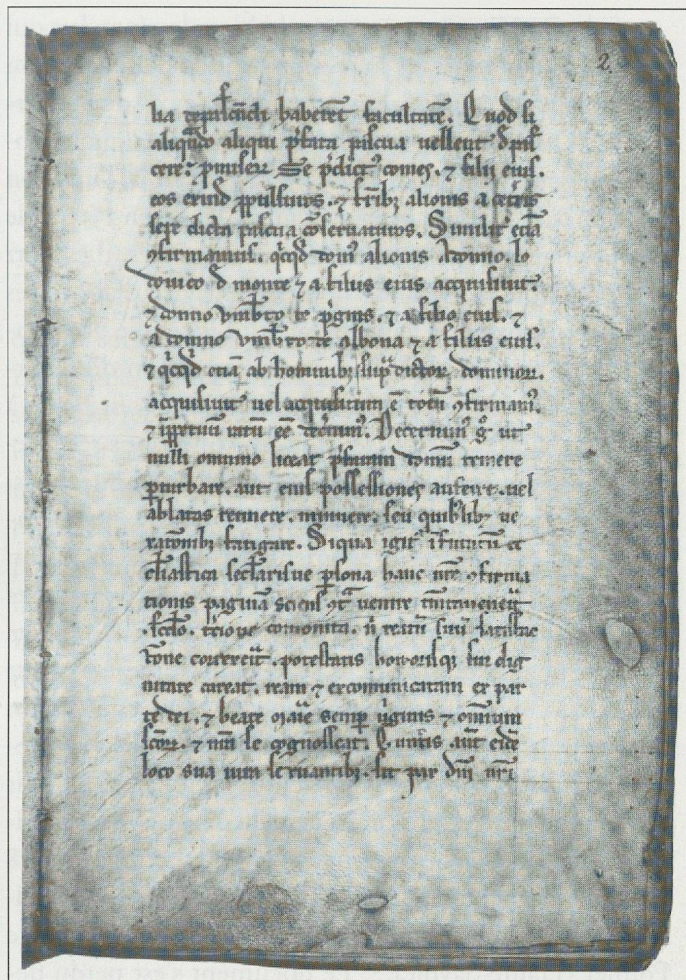 2
lia depiscandi haberet facultatẽ. Quod si
aliqñdo aliqui p̃fata piscua uellent dpis
cere: pmiser̃ Se p̃dict᷒ comes. ⁊ filij eius.
eos exind ꝓpulsuros. ⁊ fr̃ibꝫ alionis a
sepe dicta piscua cõseruaturos. Similit᷑ eciã
ꝯfirmamus. qicqd dom᷒ alionis
d monte ⁊ a filiis eius acquisiuit.
⁊ donno Vmb̃to ⁊ a filio eius. ⁊
a donno Vmb̃to de albona ⁊ a filiis eius.
⁊ qicqd eciã ab hominibꝫ sup̃ dictoꝝ dominoꝝ.
acquisiuit uel acquisitum ẽ totũ ꝯfirmam᷒.
⁊ ratũ ẽe Decernim᷒ g̊ ut
nulli omnino liceat p̃fatam domũ temere
pturbare. aut eius possessiones auferre. uel
ablatas retinere. minuere. seu quibꝫlibꝫ ue
xatõnibꝫ fatigare. Siqua igit᷑ ĩ futurũ ec
cl̃iastica sec̃larisue psona hanc nr̃e ꝯfirma
tionis paginã sciens ꝯt̃ uenire temptauerit
sc̃do. t̃ciove comonita. ñ reatũ suũ satisfac
tõne correxerit. potestatis honorisqꝫ sui dig
nitate careat. ream ⁊ excomunicatam ex par
te dei. ⁊ beate marie semp uirginis ⁊ omnium
sc̃oꝝ. ⁊ nr̃m se cognoscat. Cunctis aut eidẽ
loco sua iura seruantibꝫ. sit pax dñi nr̃i